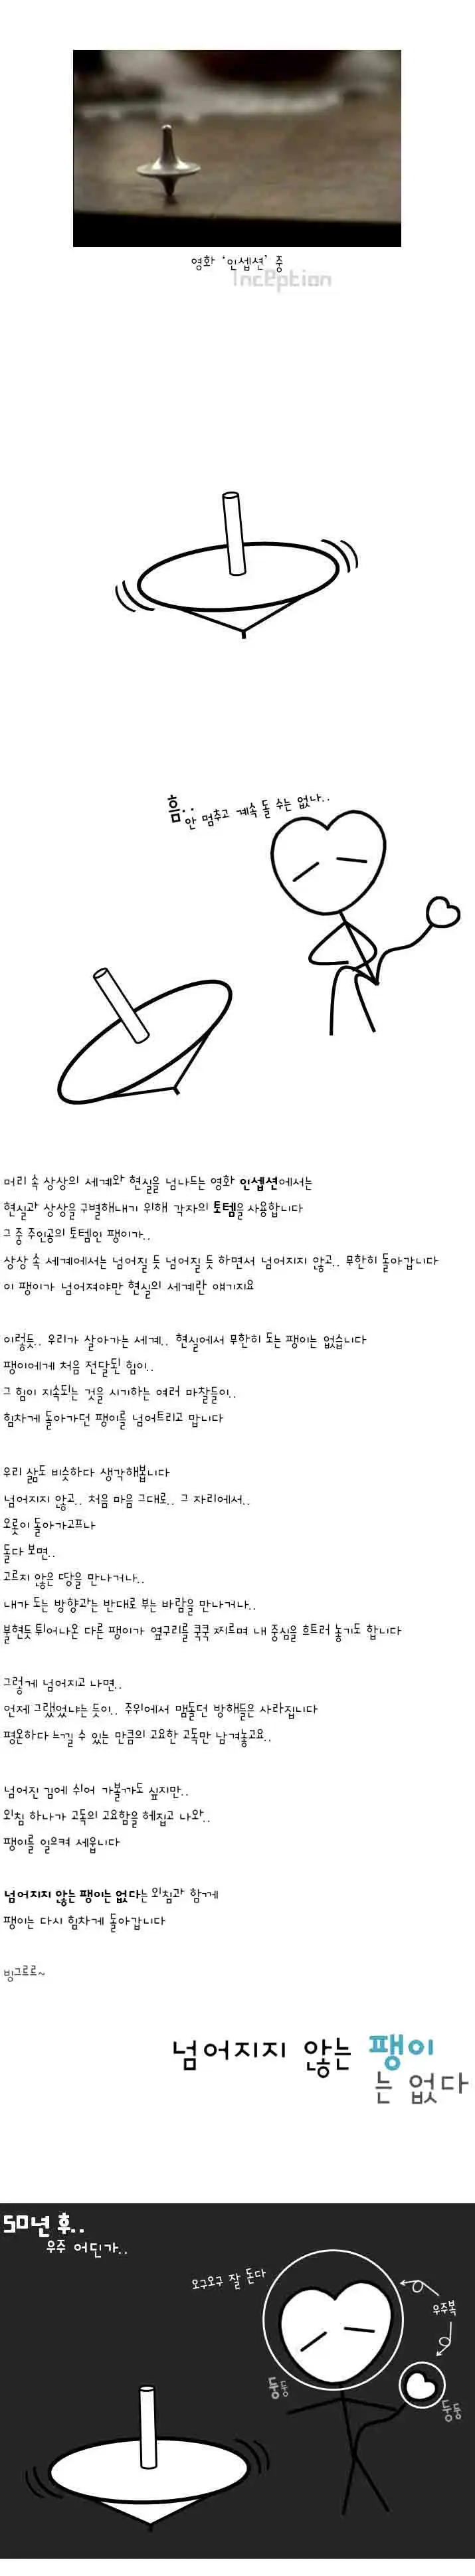 영화 '인셉션' 중
Inception
흠..
안 멈추고 계속 돌 수는 없나..
머리 속 상상의 세계와 현실을 넘나드는 영화 인셉션에서는
현실과 상상을 구별해내기 위해 각자의 토템을 사용합니다
그 중 주인공의 토템인 팽이가..
상상 속 세계에서는 넘어질 듯 넘어질 듯 하면서 넘어지지 않고.. 무한히 돌아갑니다
이 팽이가 넘어져야만 현실의 세계란 얘기지요
이렇듯.. 우리가 살아가는 세계.. 현실에서 무한히 도는 팽이는 없습니다
팽이에게 처음 전달된 힘이..
그 힘이 지속되는 것을 시기하는 여러 마찰들이..
힘차게 돌아가던 팽이를 넘어트리고 맙니다
우리 삶도 비슷하다 생각해봅니다
넘어지지 않고.. 처음 마음 그대로.. 그 자리에서..
오롯이 돌아가고프나
돌다 보면..
고르지 않은 땅을 만나거나..
내가 도는 방향과는 반대로 부는 바람을 만나거나..
불현듯 튀어나온 다른 팽이가 옆구리를 쿡쿡 찌르며 내 중심을 흐트러 놓기도 합니다
그렇게 넘어지고 나면..
언제 그랬었냐는 듯이.. 주위에서 맴돌던 방해들은 사라집니다
평온하다 느낄 수 있는 만큼의 고요한 고독만 남겨놓고요..
넘어진 김에 쉬어 가볼까도 싶지만..
외침 하나가 고독의 고요함을 헤집고 나와..
팽이를 일으켜 세웁니다
넘어지지 않는 팽이는 없다는 외침과 함께
팽이는 다시 힘차게 돌아갑니다
빙그르르~
넘어지지 않는 팽이
는 없다
50년 후..
우주 어딘가..
오구오구 잘 돈다
우주복
둥둥
둥둥